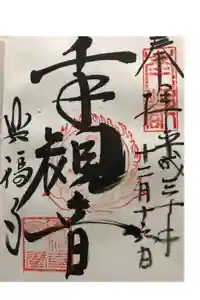 奉拝
平成三十年
十二月十六日
千手観音
興福寺